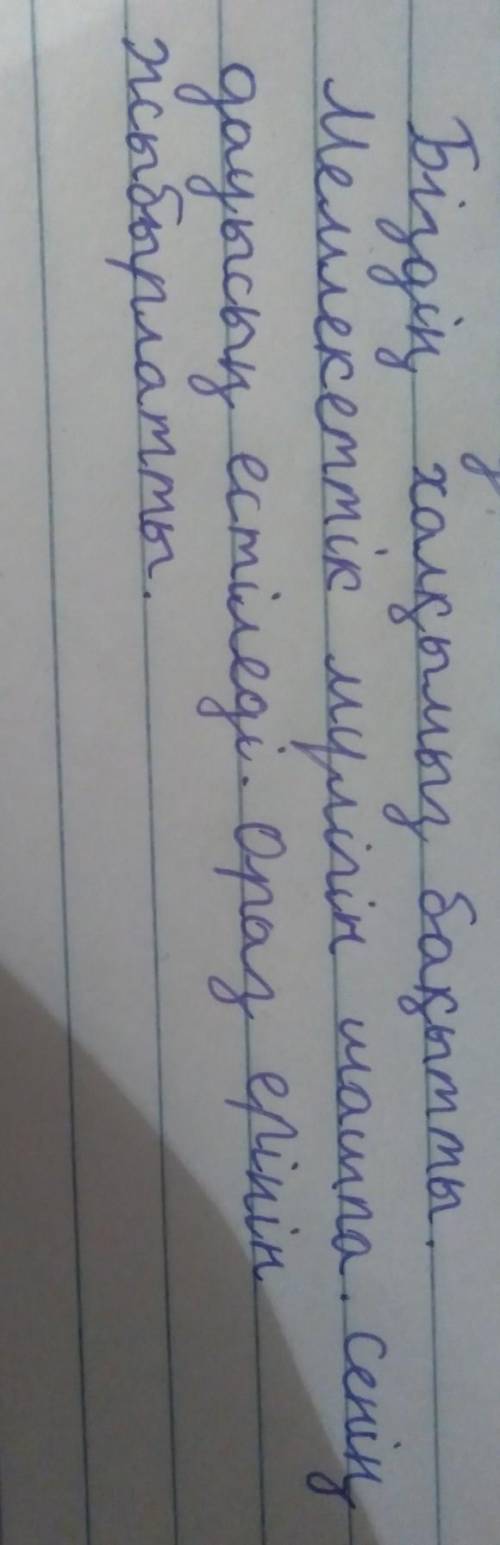 Біздің халқымыз бақытты.
Мемлекеттік мүлігін шашпа. Сенің
дауысың естіледі. Ораз ерінін
жыбырлатты.